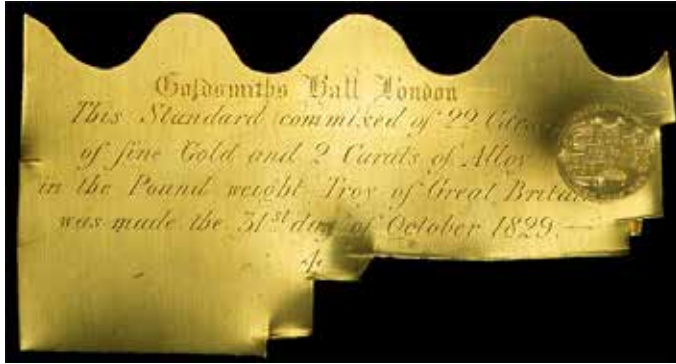 Goldsmiths Hall London
This Standard commixed of 22 Carats
of fine Gold and 2 Carats of Alloy
in the Pound weight Troy of Great Britain
was made the 31st day of October 1829.—